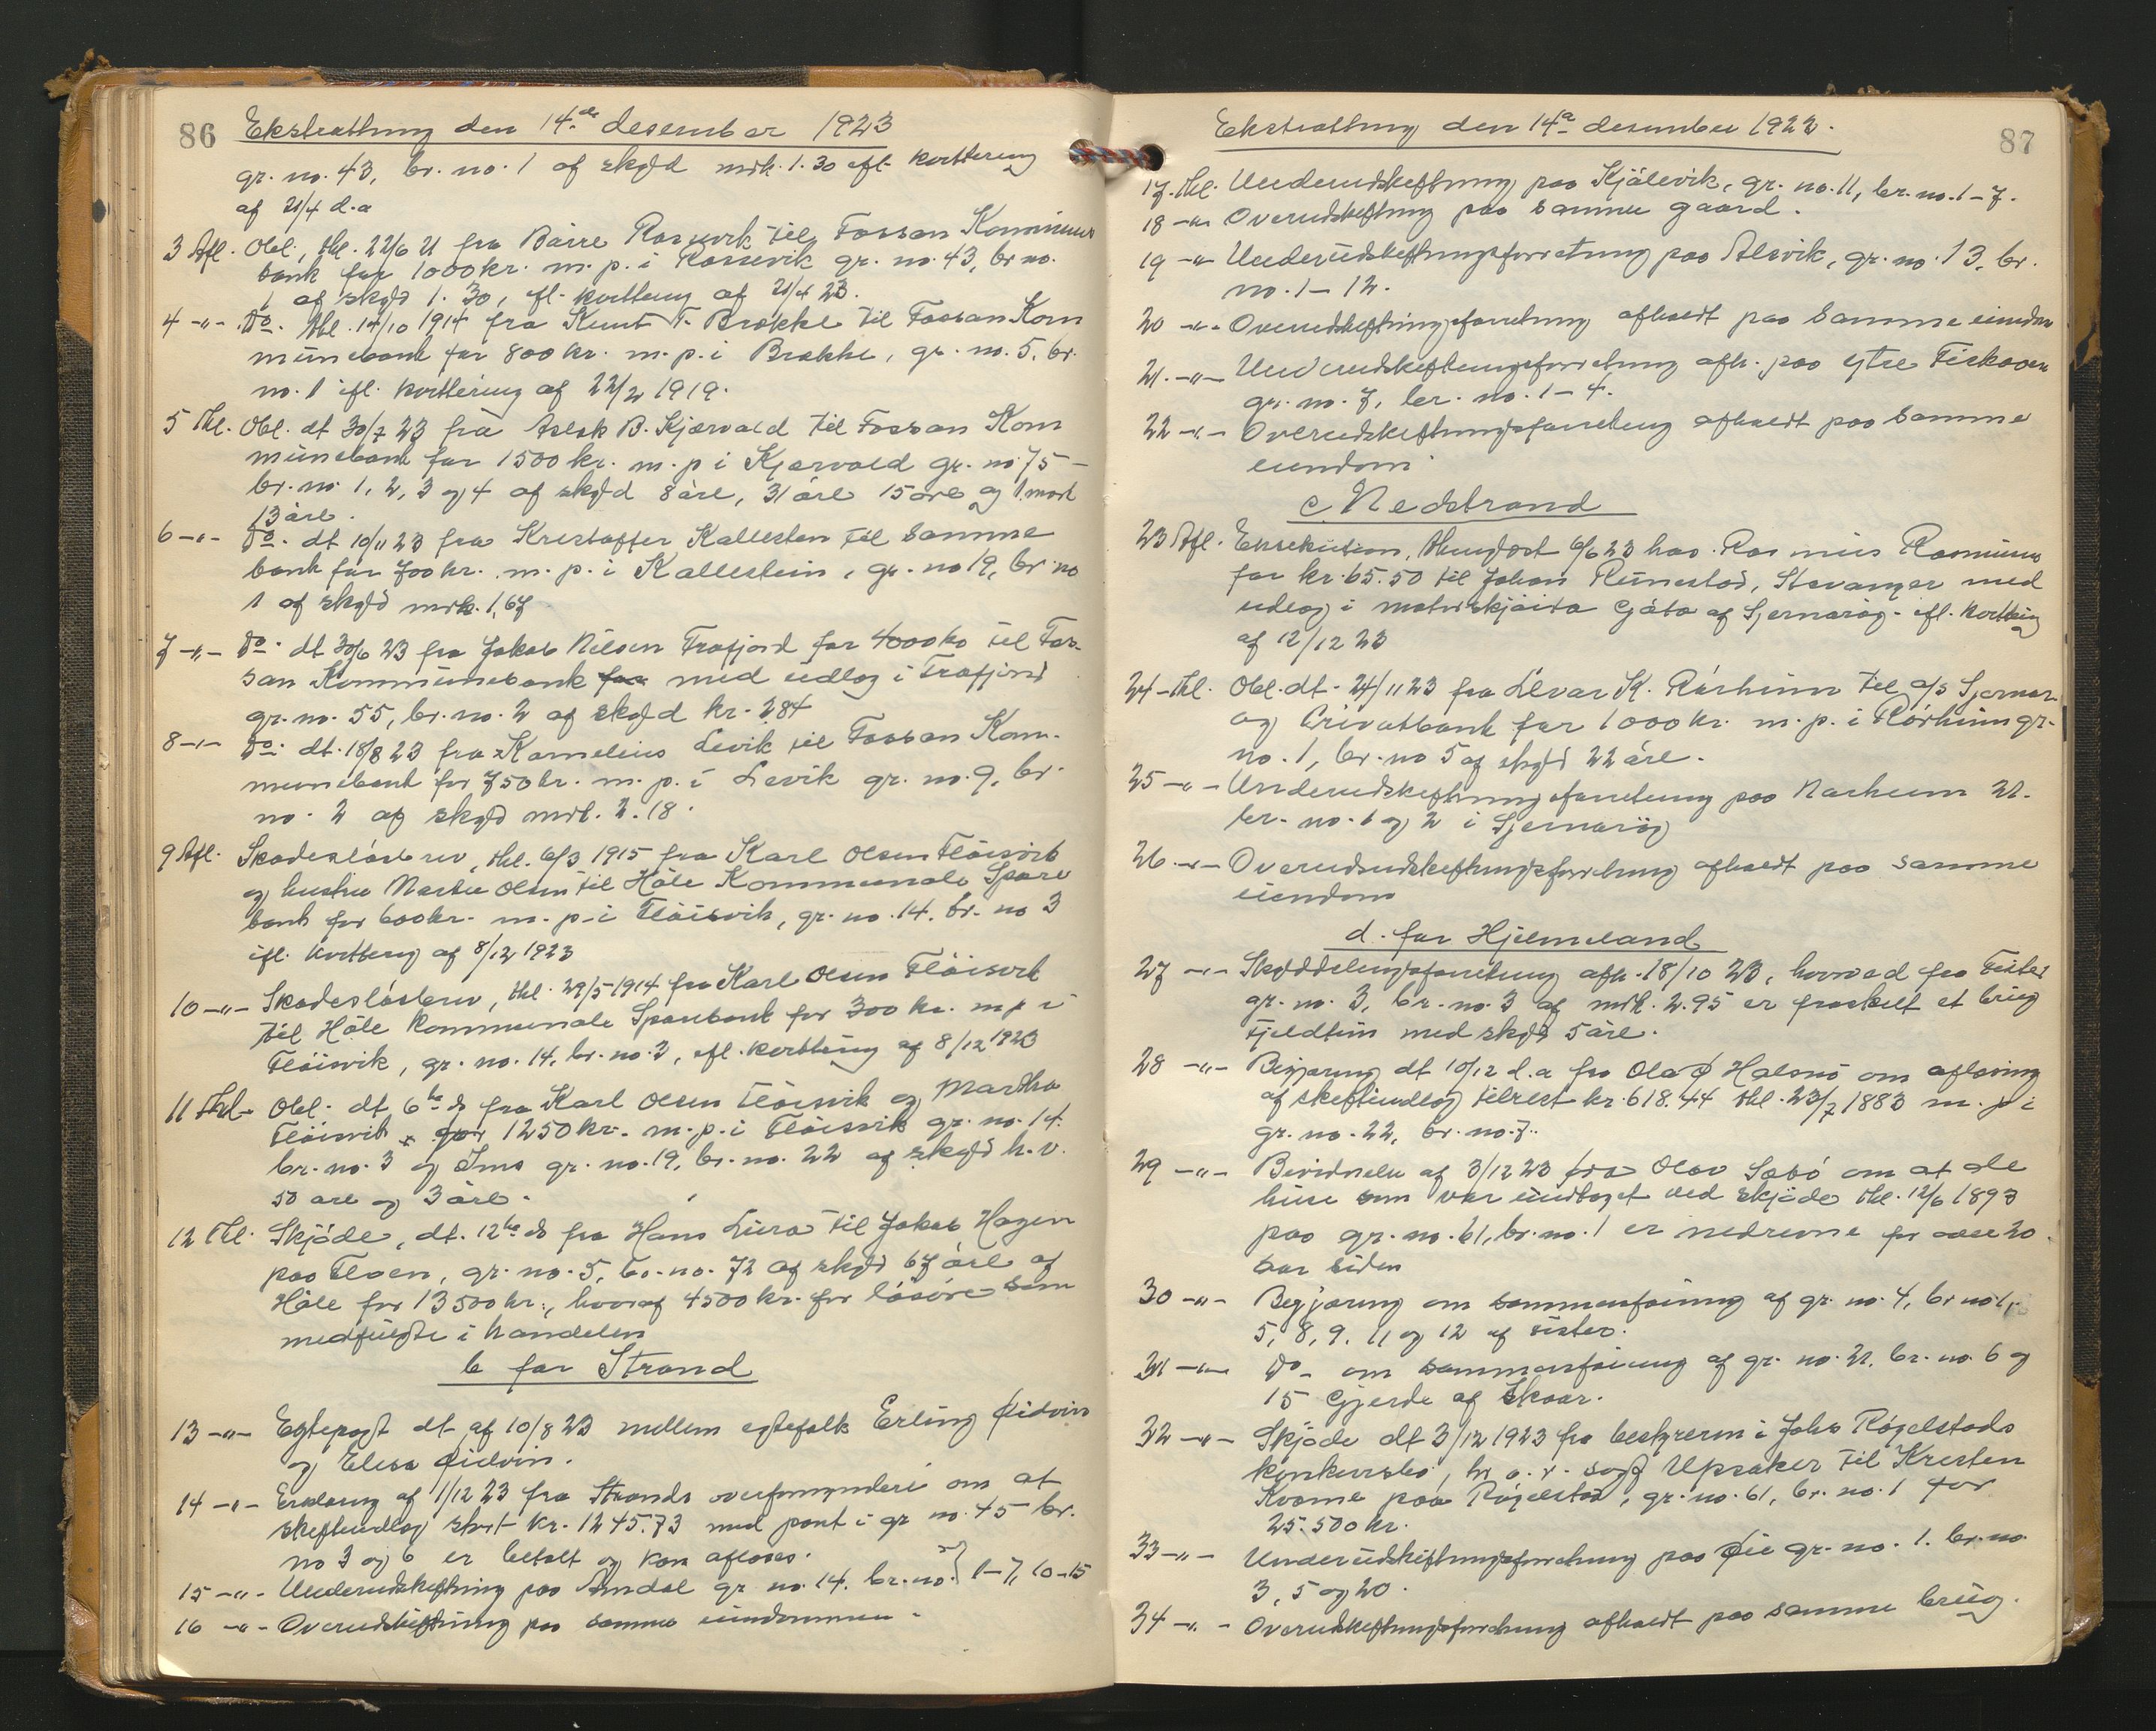 86 Ekstratting den 14.de desember 1923
gr. no. 43, br. no. 1 af skyld mrk. 1.30 efl. kvittering
af 21/4 d.a
3 Afl. Obl., thl. 22/6 21 fra Börre Rossevik til Fossan Kommune
bank for 1000 kr. m. p. i Rossevik gr. no. 43, br no.
1 af skyld 1.30, efl. kvittering af 21/4 23.
4 -"- Do. thl. 14/10 1914 fra Knut T. Brække til Fossan Kom
munebank for 800 kr. m. p. i Brække, gr. no. 5, br.
no. 1 ifl. kvittering af 22/2 1919.
5 Thl. Obl. dt 30/7 23 fra Aslak B. Kjærvold til Fossan Kom
munebank for 1500 kr. m. p i Kjærvold gr. no 75 -
br. no 1, 2, 3 og 4 af skyld 8 öre, 31 öre 15 öre og 1 mark
13 öre.
6 -"- Do. dt 10/11 23 fra Kristoffer Kallesten til samme
bank for 700 kr. m. p. i Kallestein, gr. no 19, br no
1 af skyld mrk. 1,67
7 -"- Do. dt 30/6 23 fra Jakob Nilsen Frafjord for 4000 kr til Fos-
san Kommunebank for med udlæg i Frafjord
gr. no. 55, br. no. 2 af skyld kr. 2,84
8 -"- Do. dt. 18/8 23 fra Kornelius Levik til Fossan Kom-
munebank for 750 kr. m. p. i Levik gr. no. 9, br.
no. 2 af skyld mrk. 2.18.
9 Afl. Skadeslösbrev, thl. 6/3 1915 fra Karl Olsen Flöisvik
og hustru Marta Olsen til Höle Kommunale Spare
bank for 600 kr. m. p. i Flöisvik, gr. no. 14. br. no 3
ifl. kvittering af 8/12 1923
10 -"- Skadeslösbrev, thl. 29/5 1914 fra Karl Olsen Flöisvik
til Höle Kommunale Sparebank for 300 kr. m p i
Flöisvik, gr. no. 14, br. no. 3, efl. kvittering af 8/12 1923
11 Thl. Obl. dt 6te ds fra Karl Olsen Flöisvik og Martha
Flöisvik for 1250 kr. m. p. i Flöisvik gr. no. 14.
br. no. 3 og Ims gr. no. 19, br. no. 22 af skyld h. v.
50 öre og 3 öre.
12 Thl. Skjöde, dt. 12te ds fra Hans Lura til Jakob Hagen
paa Floen, gr. no. 5, br. no. 72 af skyld 67 öre af
Höle for 13500 kr., hvoraf 4500 kr. for lösöre som
medfulgte i handelen
b for Strand
13 -"- Egtepagt dt af 10/8 23 mellem egtefolk Erling Eidvin
og Elisa Eidvin.
14 -"- Erklæring af 1/12 23 fra Strands overformynderi om at
skifteudlæg stort kr. 1245.73 med pant i gr no. 45 br.
no 3 og 6 er betalt og kan afloses.
15 -"- Underudskiftning paa Amdal gr. no. 14. br. no. } 1-7, 10-15
16 -"- Overudskiftning paa samme eiendommen.
Ekstratting den 14de desember 1923. 87
17. thl. Underudskiftning paa Kjölevik, gr. no. 11, br. no. 1-7.
18 -"- Overudskiftning paa samme gaard.
19 -"- Underudskiftningsforretning paa Alsvik, gr. no. 13, br.
no. 1-12.
20 -"- Overudskiftningsforretning afholdt paa samme eiendom
21. -"- Underudskiftningsforretning afh. paa ytre Fiskaaen
gr. no. 7, br. no. 1-4.
22 -"- Overudskiftningsforretning afholdt paa samme
eiendom
c. Nedstrand
23 Afl. Eksekution, thinglyst 6/6 23 hos Rasmus Rasmussen
for kr. 65.50 til Johan Runestad, Stavanger med
udlæg i motorskjöita Gjöta af Sjernaröy - ifl. kvittering
af 12/12 23
24 - thl. Obl. dt. 24/11 23 fra Elvar K. Rörheim til a/s Sjernar-
öy Privatbank for 1000 kr. m. p. i Rörheim gr.
no. 1, br. no 5 af skyld 22 öre.
25 -"- Underudskiftningsforretning paa Narheim 21.
br. no. 1 og 2 i Sjernaröy
26 -"- Overudsudskiftningsforretning afholdt paa samme
eiendom
d. for Hjelmeland
27 -"- Skylddelingsforretning afh. 18/10 23, hvorved fra Fister
gr. no. 3, br. no. 3 af mrk. 2.95 er fraskilt et brug
Fjeldtun med skyld 5 öre.
28 -"- Begjæring dt 10/12 d. a fra Ola Ø Halsnö om aflösning
af skifteudlæg tilrest kr. 618.44 thl. 23/7 1883 m. p i
gr. no. 22, br. no. 7.
29 -"- Bevidnelse af 3/12 23 fra Olav Sæbö om at de
huse som var undtaget ved skjöde thl. 12/6 1893
paa gr. no. 61, br. no. 1 er nedrevne for over 20
aar siden
30 -"- Begjæring om sammenföining af gr. no. 4, br no 1,
5, 8, 9, 11 og 12 af Fister.
31 -"- Do. om sammenföining af gr. no. 21, br. no. 6 og
15 Gjerde af Skaar.
32 -"- Skjöde dt 3/12 1923 fra bestyreren i Johs Rögelstads
konkursbo, hr o. r. sagf Upsaker til Kristen
Kvame paa Rögelstad, gr. no. 61, br. no. 1 for
25.500 kr.
33 -"- Underudskiftningsforretning paa Øie gr. no. 1. br. no
3, 5 og 20.
34 -"- Overudskiftningsforretning afholdt paa samme brug.